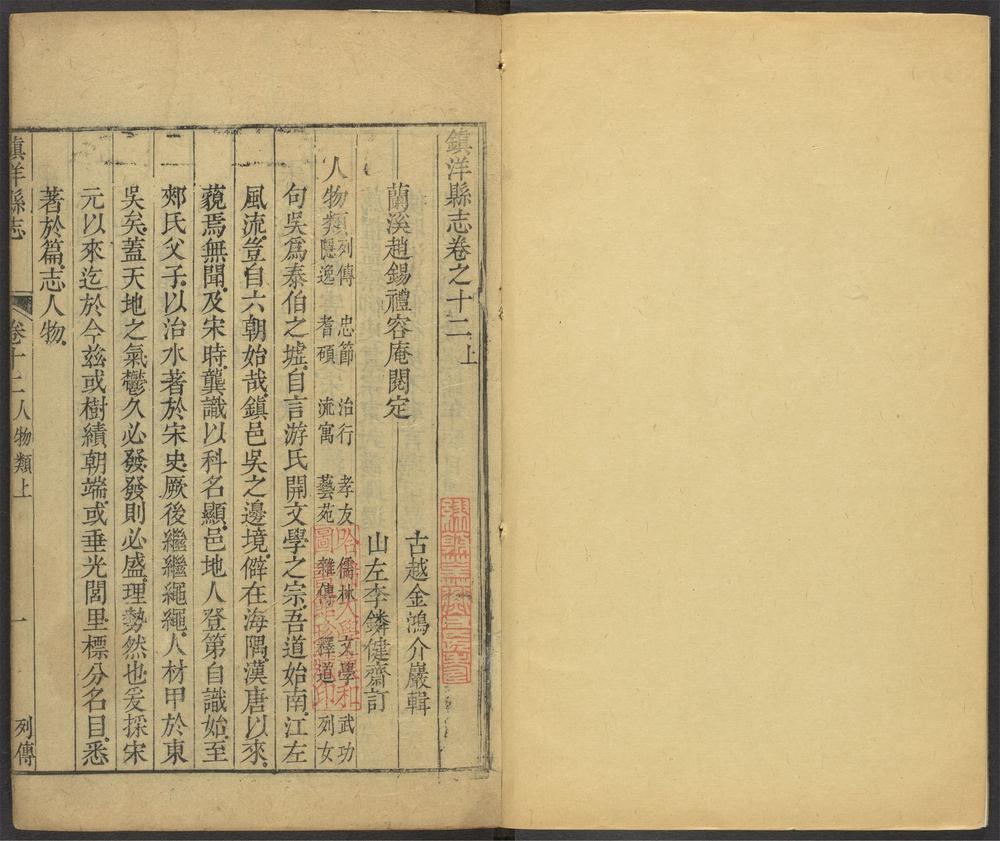 鎮洋縣志卷之十二上
蘭溪趙錫禮容庵閱定
古越金鴻介巖輯
山左李鏻健齋訂
人物類 列傳 忠節 治行 孝友 儒林 文學 武功
隱逸 耆碩 流寓 藝苑 雜傳 釋道 列女
句吳爲泰伯之墟自言游氏開文學之宗吾道始南江左
風流豈自六朝始哉鎮邑吳之邊境僻在海隅漢唐以來
藐焉無聞及宋時龔識以科名顯邑地人登第自識始至
郟氏父子以治水著於宋史厥後繼繼繩繩人材甲於東
吳矣蓋天地之氣鬱久必發發則必盛理勢然也爰採宋
元以來迄於今茲或樹績朝端或垂光閭里標分名目悉
著於篇志人物
鎮洋縣志 卷十二人物類上 一 列傳